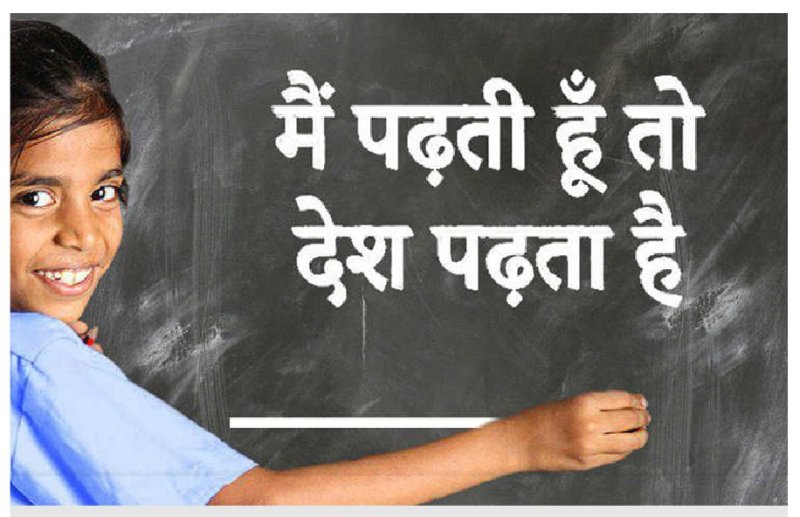 मैं पढ़ती हूँ तो
देश पढ़ता है